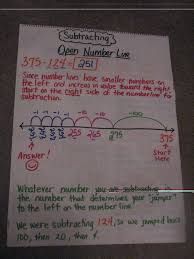 Subtracting
Open Number Line
375 - 124 = 251
Since number lines have smaller numbers on
the left and increase in value toward the right,
start on the right side of the number line for
subtraction.
-1 -1 -1 -1 -10 -10 -100
255 265 275 375
Answer!
Start
Here
Whatever number you are subtracting is
the number that determines your "jumps"
to the left on the number line.
We were subtracting 124, so we jumped back
100, then 20, then 4.